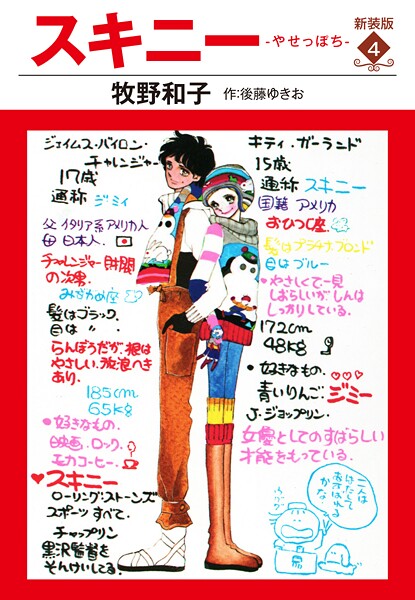 スキニー
-やせっぽち-
新装版
4
牧野和子
作:後藤ゆきお
ジェイムス・バイロン・
チャレンジャー
17歳
通称 ジミィ
父 イタリア系アメリカ人
母 日本人.
チャレンジャー財閥
の次男.
みずがめ座
髪はブラック.
目は 〃 .
らんぼうだが、根は
やさしい. 放浪へき
あり.
185cm
65kg
・好きなもの.
映画. ロック.
モカコーヒー.
♥スキニー
ローリング・ストーンズ
スポーツ すべて.
チャップリン
黒沢監督を
そんけいしてる.
キティ・ガーランド
15歳
通称 スキニー
国籍 アメリカ
おひつじ座
髪はプラチナ・ブロンド
目はブルー
・やさしくて一見
しおらしいが しんは
しっかりしている.
172cm
48kg
・好きなもの. ♡♡♡
青いりんご. ジミー
J・ジョップリン.
女優としてのすばらしい
才能をもっている.
二人は